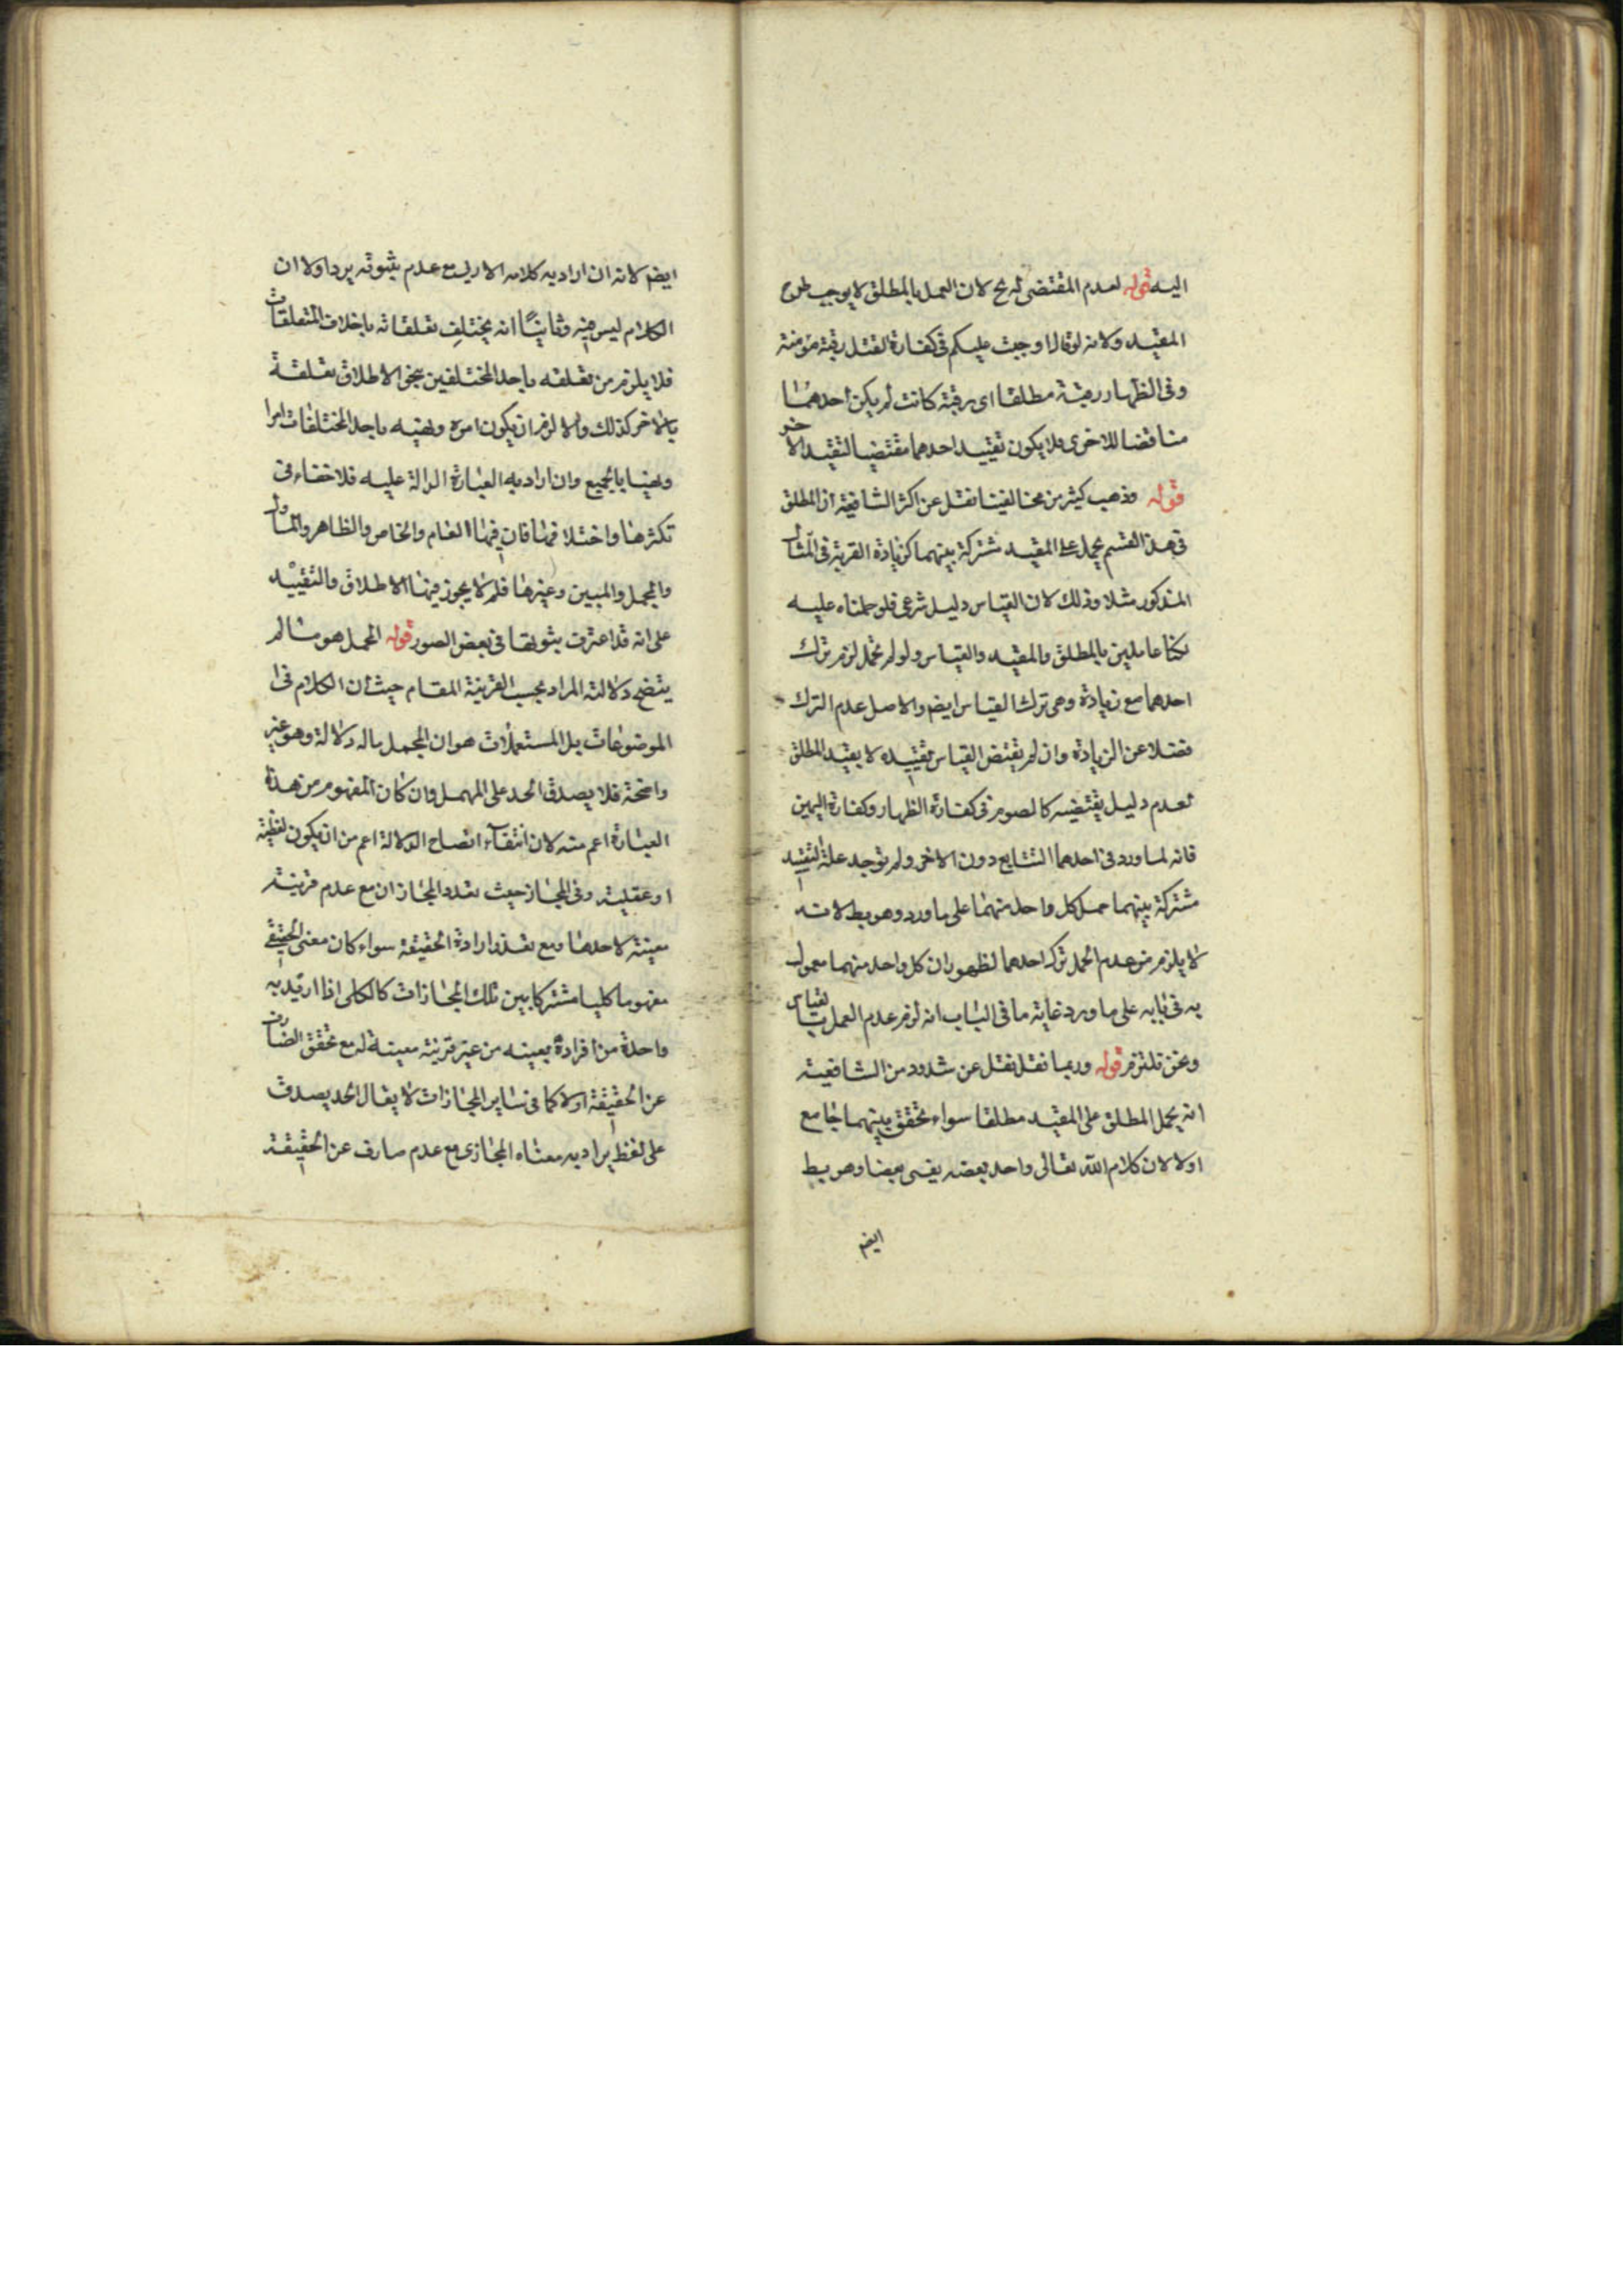 اليه قوله لعدم المقتضى له ح لان العمل بالمطلق لا يوجب طرح
المقيد ولانه لو قال اوجبت عليكم فى كفارة القتل رقبة مؤمنة
وفى الظهار رقبة مطلقا اى رقبة كانت لم يكن احدهما
مناقضا للاخرى فلا يكون تقييد احدهما مقتضيا لتقييد الاخر
قوله وذهب كثير من مخالفينا نقل عن اكثر الشافعية ان المطلق
فى هذا القسم يحمل على المقيد مشتركة بينهما كزيادة القربة فى المثال
المذكور مثلا وذلك لان القياس دليل شرعى فلو حملناه عليه
لكنا عاملين بالمطلق والمقيد والقياس ولو لم نحمل لزم ترك
احدهما مع زيادة وهى ترك القياس ايضا والاصل عدم الترك
فضلا عن الزيادة وان لم يقتض القياس تقييده لا يقيد المطلق
لعدم دليل يقتضيه كالصوم فى كفارة الظهار وكفارة اليمين
فانه لما ورد فى احدهما التتابع دون الاخرى ولم توجد علة التقييد
مشتركة بينهما حمل كل واحد منهما على ما ورد وهو بط لانه
لا يلزم من عدم الحمل ترك احدهما لظهور ان كل واحد منهما معمول
به فى بابه على ما ورد غاية ما فى الباب انه لزم عدم العمل بالقياس
ونحن نلتزم قوله وربما نقل نقل عن شذوذ من الشافعية
انه يحمل المطلق على المقيد مطلقا سواء تحقق بينهما جامع
اولا لان كلام الله تعالى واحد بعضه يفسر بعضا وهو بط
ايضا
ايضا لانه ان اراد به كلامه الازلى مع عدم ثبوته يرد اولا ان
الكلام ليس فيه وثانيًا انه يختلف تعلقاته باختلاف المتعلقات
فلا يلزم من تعلقه باحد المختلفين بنحو الاطلاق تعلقه
بالاخر كذلك والا لزم ان يكون امره ونهيه باحد المختلفات امرا
ونهيا بالجميع وان اراد به العبارة الدالة عليه فلا خفاء فى
تكثرها واختلافها فان فيها العام والخاص والظاهر والماول
والمجمل والمبين وغيرها فلم لا يجوز فيها الاطلاق والتقييد
على انه قد اعترف بثبوتها فى بعض الصور قوله المجمل هو ما لم
يتضح دلالته المراد بحسب القرينة المقام حيث ان الكلام فى
الموضوعات بل المستعملات هو ان المجمل ماله دلالة وهو غير
واضحة فلا يصدق الحد على المهمل وان كان المفهوم من هذه
العبارة اعم منه لان انتفاء اتضاح الدلالة اعم من ان يكون لفظية
او عقلية وفى المجاز حيث تعدد المجازان مع عدم قرينة
معينة لاحدها ومع تعذر ارادة الحقيقة سواء كان معنى الحقيقى
مفهوما كليا مشتركا بين تلك المجازات كالكلى اذا اريد به
واحدة من افراده بعينه من غير قرينة معينة له مع تحقق الصارف
عن الحقيقة اولا كما فى ساير المجازات لا يقال الحد يصدق
على لفظ يراد به معناه المجازى مع عدم صارف عن الحقيقة